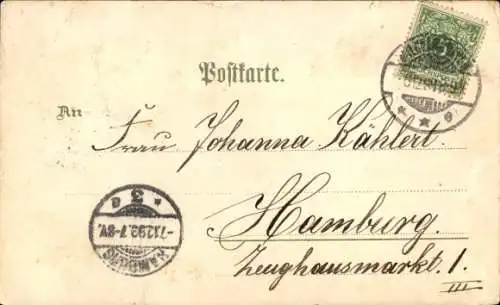 5
Postkarte.
An
Frau Johanna Kählert.
Hamburg.
Zeughausmarkt. 1.
III
* 3 e
-7.12.99.7-8V.
HAMBURG